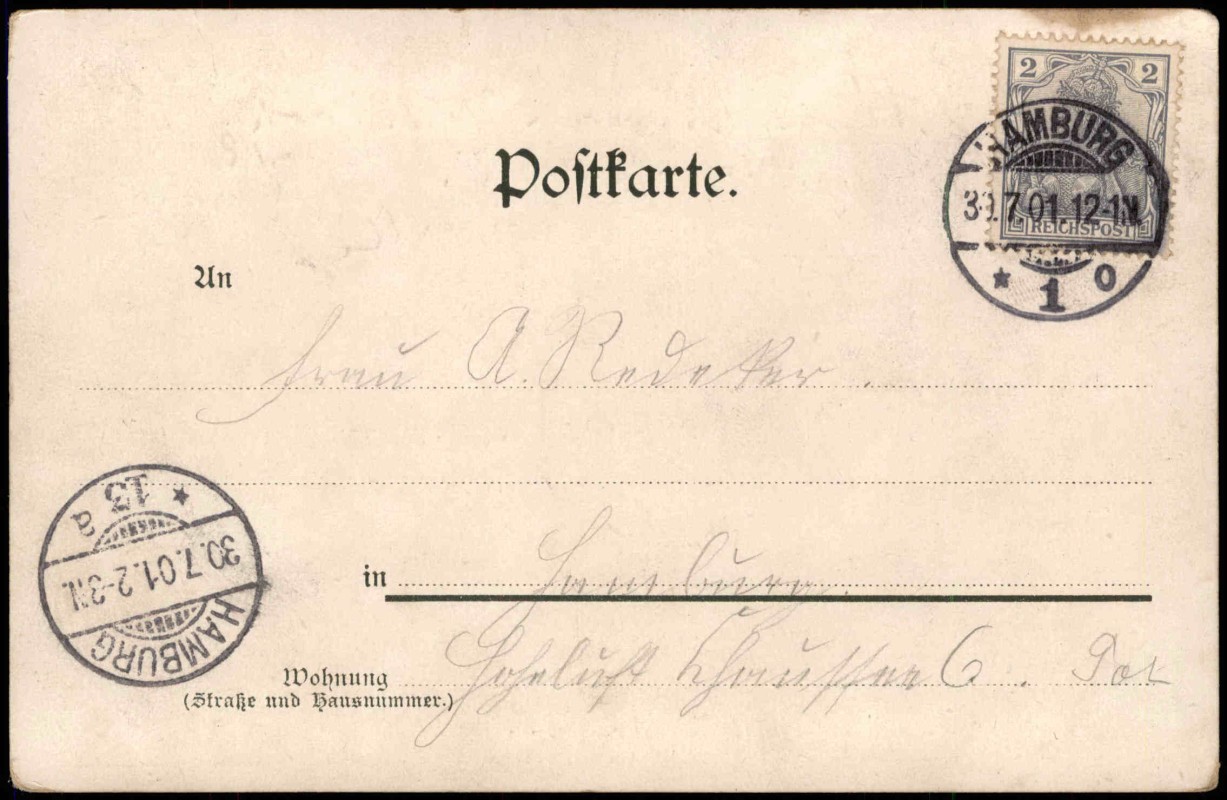 2 2
REICHSPOST
HAMBURG
30.7.01.12-1N.
* 1 o
Postkarte.
An
Frau A. Redeker.
in Hamburg.
Wohnung Hoheluft Chaussee 6.
(Straße und Hausnummer.)
* 13 a
30.7.01.2-3N.
HAMBURG